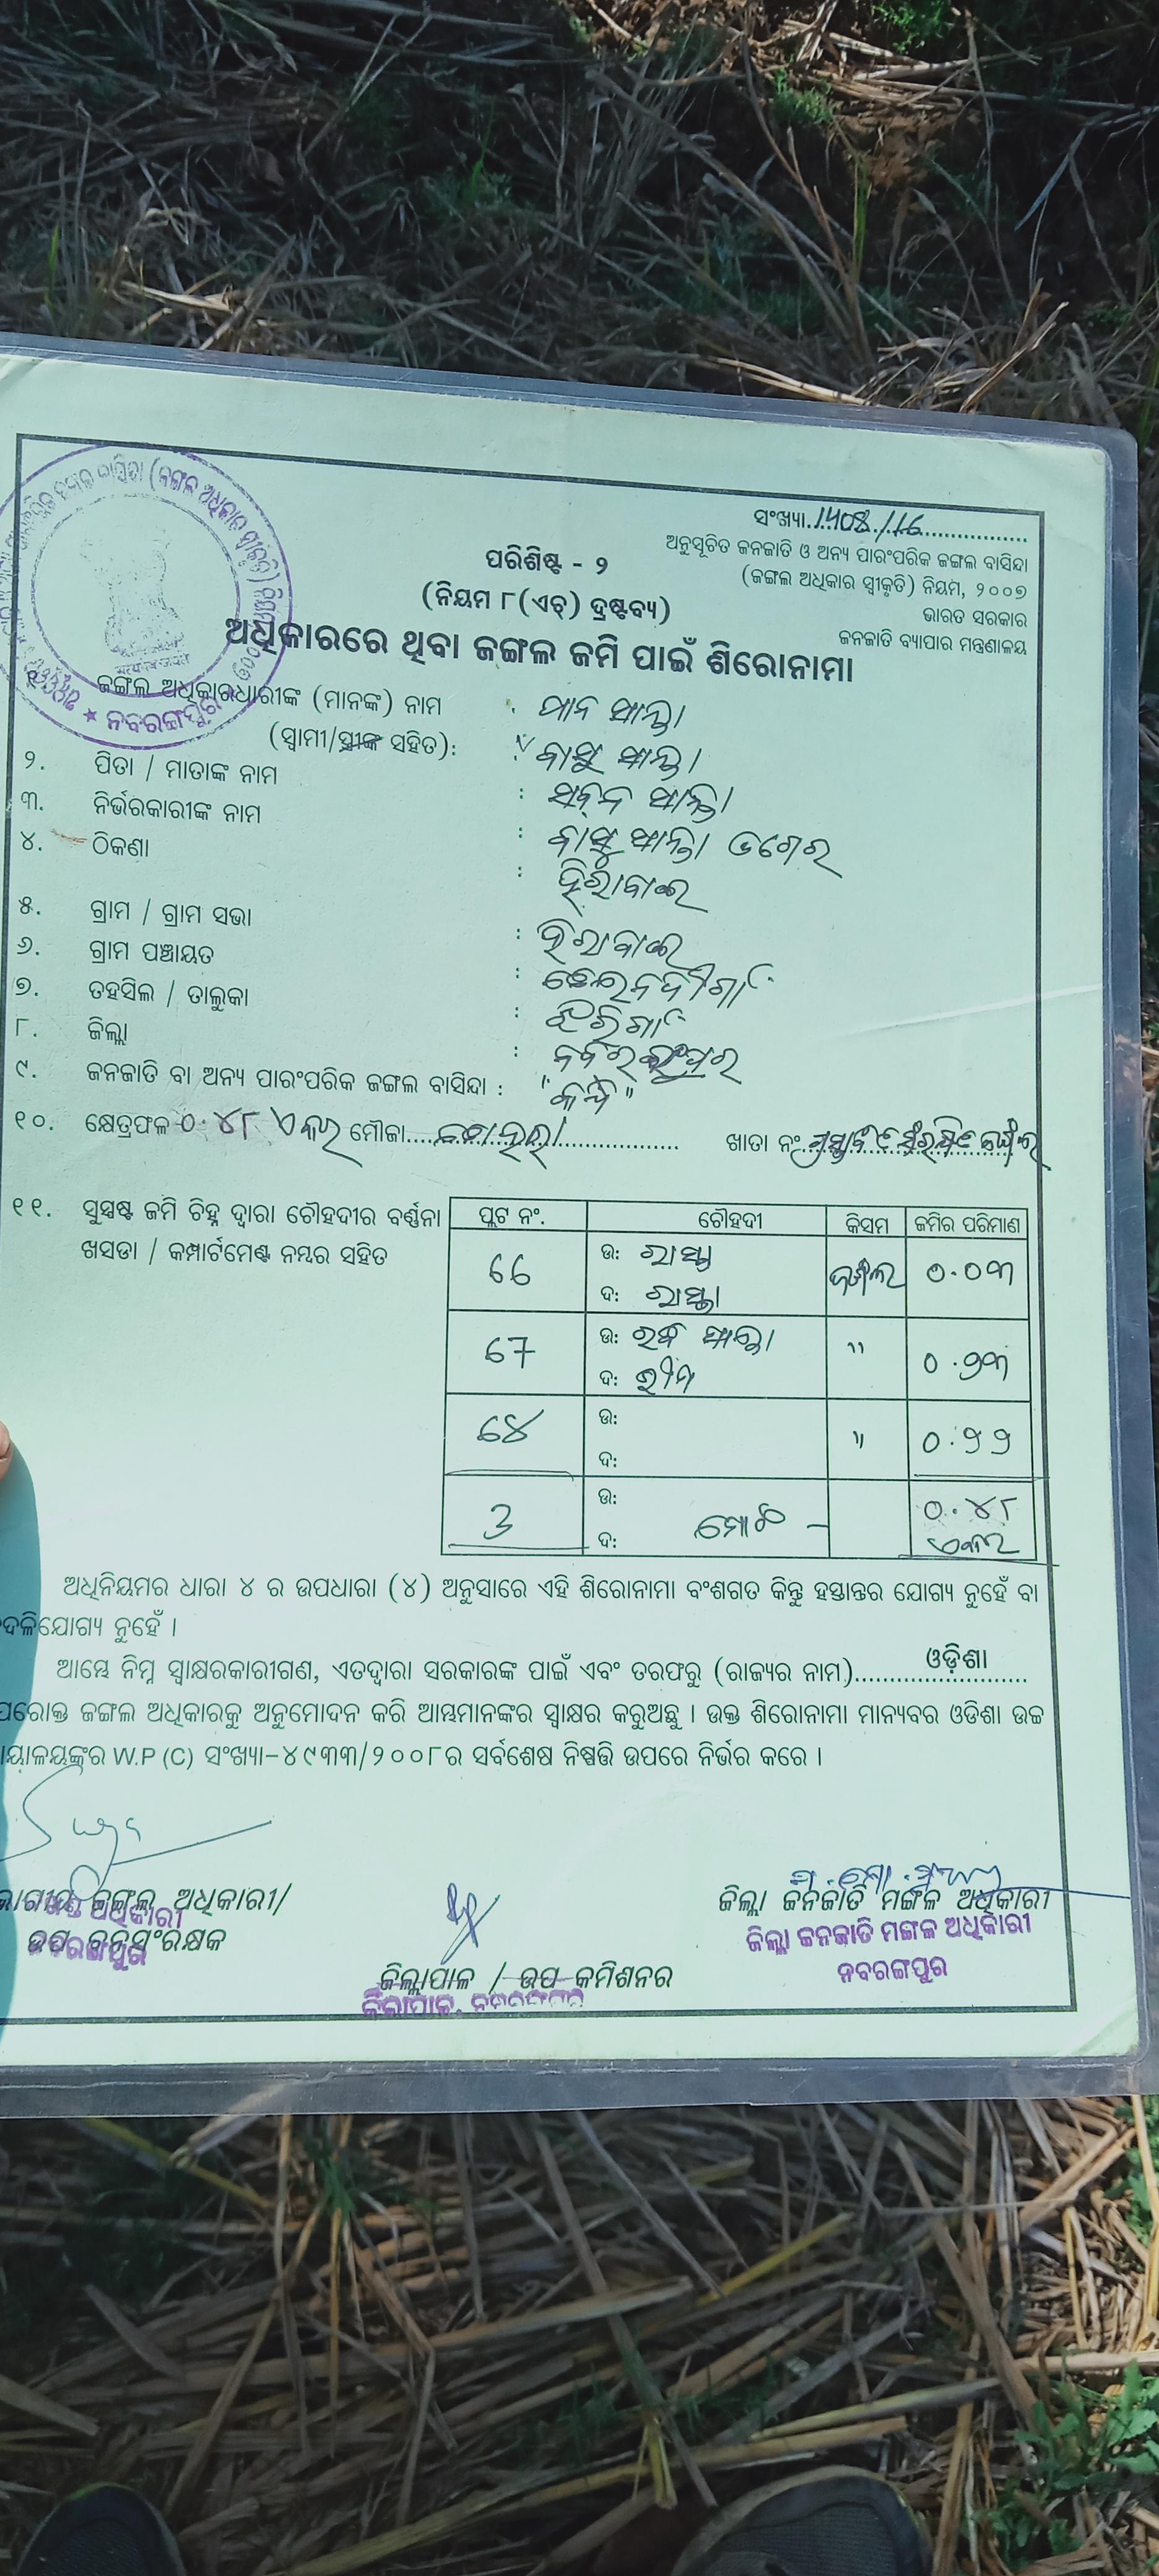 ସଂଖ୍ୟା.1408/16
ଅନୁସୂଚିତ ଜନଜାତି ଓ ଅନ୍ୟ ପାରଂପରିକ ଜଙ୍ଗଲ ବାସିନ୍ଦା
(ଜଙ୍ଗଲ ଅଧିକାର ସ୍ୱୀକୃତି) ନିୟମ, ୨୦୦୭
ଭାରତ ସରକାର
ଜନଜାତି ବ୍ୟାପାର ମନ୍ତ୍ରଣାଳୟ
ପରିଶିଷ୍ଟ - ୨
(ନିୟମ ୮(ଏଚ୍) ଦ୍ରଷ୍ଟବ୍ୟ)
ଅଧିକାରରେ ଥିବା ଜଙ୍ଗଲ ଜମି ପାଇଁ ଶିରୋନାମା
ନବରଙ୍ଗପୁର
୧. ଜଙ୍ଗଲ ଅଧିକାରଧାରୀଙ୍କ (ମାନଙ୍କ) ନାମ : ମାନ ସାନ୍ତା
(ସ୍ୱାମୀ/ସ୍ତ୍ରୀଙ୍କ ସହିତ): ବାସୁ ସାନ୍ତା
୨. ପିତା / ମାତାଙ୍କ ନାମ : ସାନ୍ତା
୩. ନିର୍ଭରକାରୀଙ୍କ ନାମ : ବାସୁ ସାନ୍ତା
୪. ଠିକଣା : ହିରାବାଇ
୫. ଗ୍ରାମ / ଗ୍ରାମ ସଭା : ହିରାବାଇ
୬. ଗ୍ରାମ ପଞ୍ଚାୟତ :
୭. ତହସିଲ / ତାଲୁକା : ଝରିଗାଁ
୮. ଜିଲ୍ଲା :
୯. ଜନଜାତି ବା ଅନ୍ୟ ପାରଂପରିକ ଜଙ୍ଗଲ ବାସିନ୍ଦା : "କନ୍ଧ"
୧୦. କ୍ଷେତ୍ରଫଳ ୦.୪୮ ଏକର ମୌଜା ଖାତା ନଂ
୧୧. ସୁସ୍ପଷ୍ଟ ଜମି ଚିହ୍ନ ଦ୍ୱାରା ଚୌହଦୀର ବର୍ଣ୍ଣନା
ଖସଡା / କମ୍ପାର୍ଟମେଣ୍ଟ ନମ୍ବର ସହିତ
ପ୍ଲଟ ନଂ. ଚୌହଦୀ କିସମ ଜମିର ପରିମାଣ
66 ଉ: ରାସ୍ତା ଜଙ୍ଗଲ ୦.୦୩
ଦ: ରାସ୍ତା
67 ଉ: ସାନ୍ତା " ୦.୨୩
ଦ:
ଉ: " ୦.୨୨
ଦ:
3 ଉ: ମୋଟ - ୦.୪୮
ଦ: ଏକର
ଅଧିନିୟମର ଧାରା ୪ ର ଉପଧାରା (୪) ଅନୁସାରେ ଏହି ଶିରୋନାମା ବଂଶଗତ କିନ୍ତୁ ହସ୍ତାନ୍ତର ଯୋଗ୍ୟ ନୁହେଁ ବା
ଦଳିଯୋଗ୍ୟ ନୁହେଁ ।
ଆମ୍ଭେ ନିମ୍ନ ସ୍ୱାକ୍ଷରକାରୀଗଣ, ଏତଦ୍ୱାରା ସରକାରଙ୍କ ପାଇଁ ଏବଂ ତରଫରୁ (ରାଜ୍ୟର ନାମ)..... ଓଡ଼ିଶା .....
ପରୋକ୍ତ ଜଙ୍ଗଲ ଅଧିକାରକୁ ଅନୁମୋଦନ କରି ଆମ୍ଭମାନଙ୍କର ସ୍ୱାକ୍ଷର କରୁଅଛୁ । ଉକ୍ତ ଶିରୋନାମା ମାନ୍ୟବର ଓଡିଶା ଉଚ୍ଚ
ାୟାଳୟଙ୍କର W.P (C) ସଂଖ୍ୟା-୪୯୩୩/୨୦୦୮ର ସର୍ବଶେଷ ନିଷ୍ପତ୍ତି ଉପରେ ନିର୍ଭର କରେ ।
ଜଙ୍ଗଲ ଅଧିକାରୀ/
ଉପ ବନସଂରକ୍ଷକ
ଜିଲ୍ଲାପାଳ / ଉପ କମିଶନର
ଜିଲ୍ଲା ଜନଜାତି ମଙ୍ଗଳ ଅଧିକାରୀ
ଜିଲ୍ଲା ଜନଜାତି ମଙ୍ଗଳ ଅଧିକାରୀ
ନବରଙ୍ଗପୁର